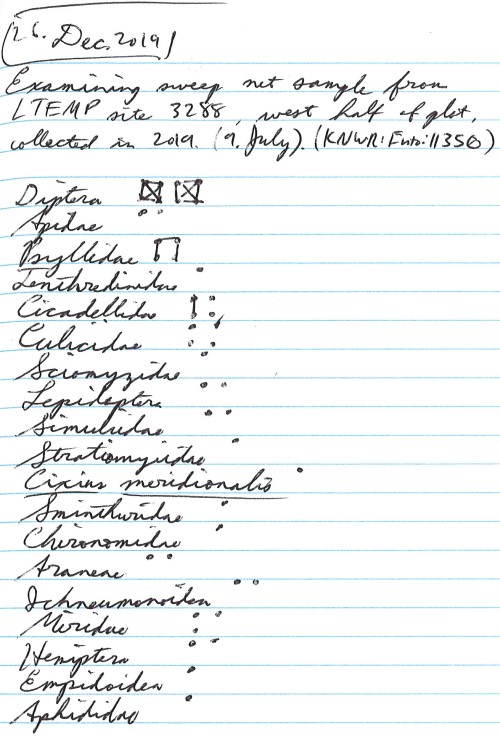 26. Dec. 2019
Examining sweep net sample from
LTEMP site 3288, west half of plot,
collected in 2019. (9. July). (KNWR:Ento:11350)
Diptera
Apidae
Psyllidae
Tenthredinidae
Cicadellidae
Culicidae
Sciomyzidae
Lepidoptera
Simuliidae
Stratiomyidae
Cixius meridionalis
Sminthuridae
Chironomidae
Araneae
Ichneumonoidea
Miridae
Hemiptera
Empidoidea
Aphididae